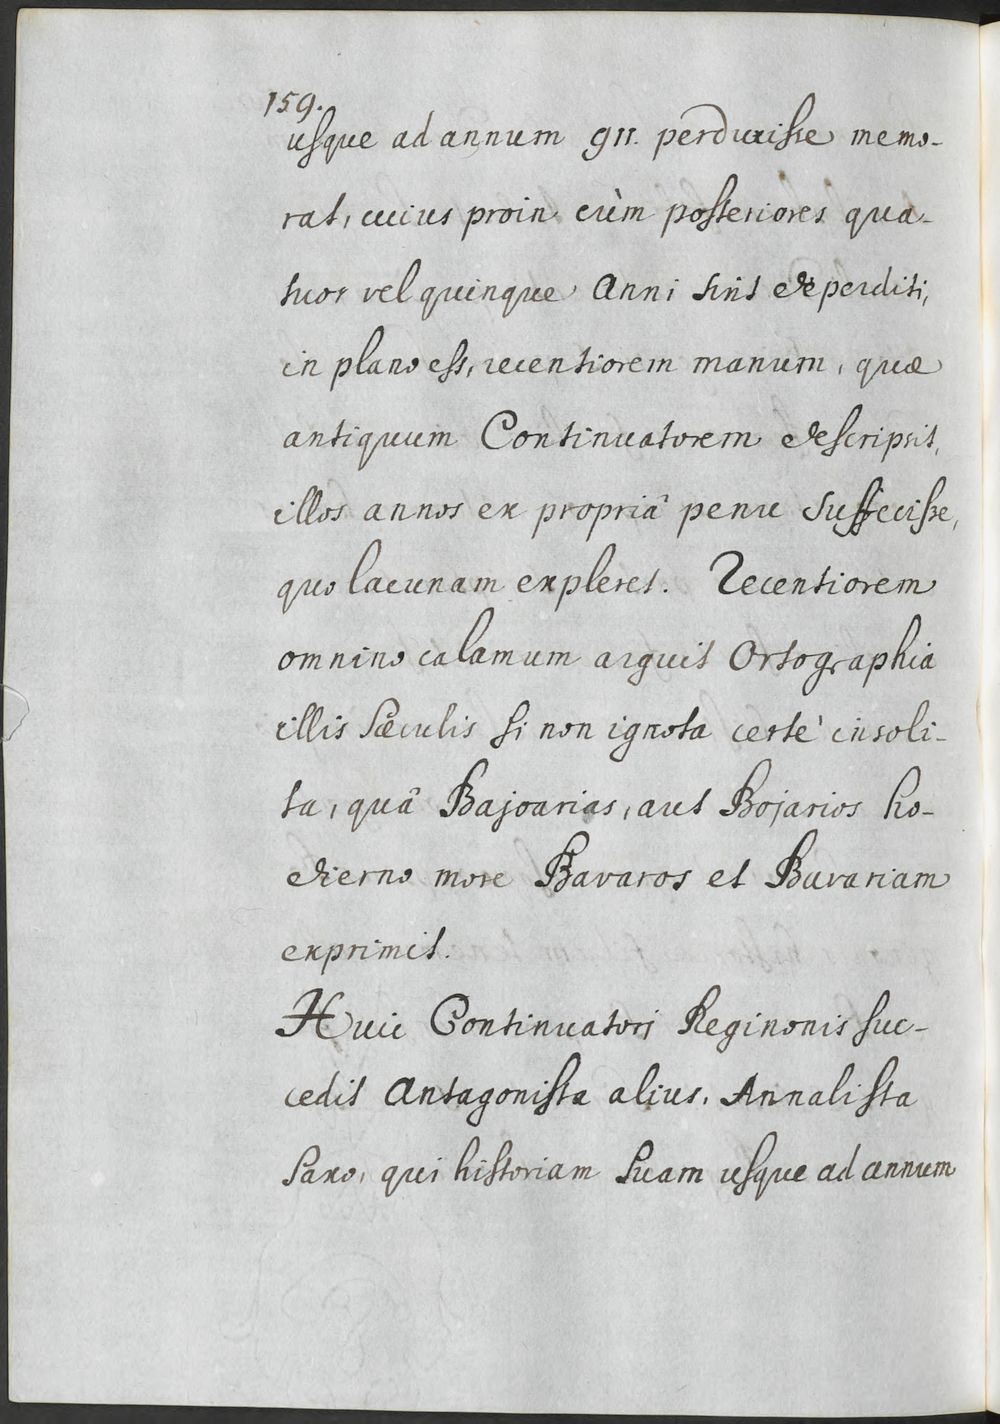 159.
usque ad annum 911. perduxisse memo-
rat, cuius proin cùm posteriores qua-
tuor vel quinque Anni sint deperditi,
in plano est, recentiorem manum, quæ
antiquum Continuatorem descripsit,
illos annos ex propriâ penu suffecisse,
quo lacunam expleret. Recentiorem
omnino calamum arguit Ortographia
illis Sæculis si non ignota certè insoli-
ta, quâ Bajoarias, aut Bojarios ho-
dierno more Bavaros et Bavariam
exprimit.
Huic Continuatori Reginonis suc-
cedit Antagonista alius, Annalista
Saxo, qui historiam suam usque ad annum